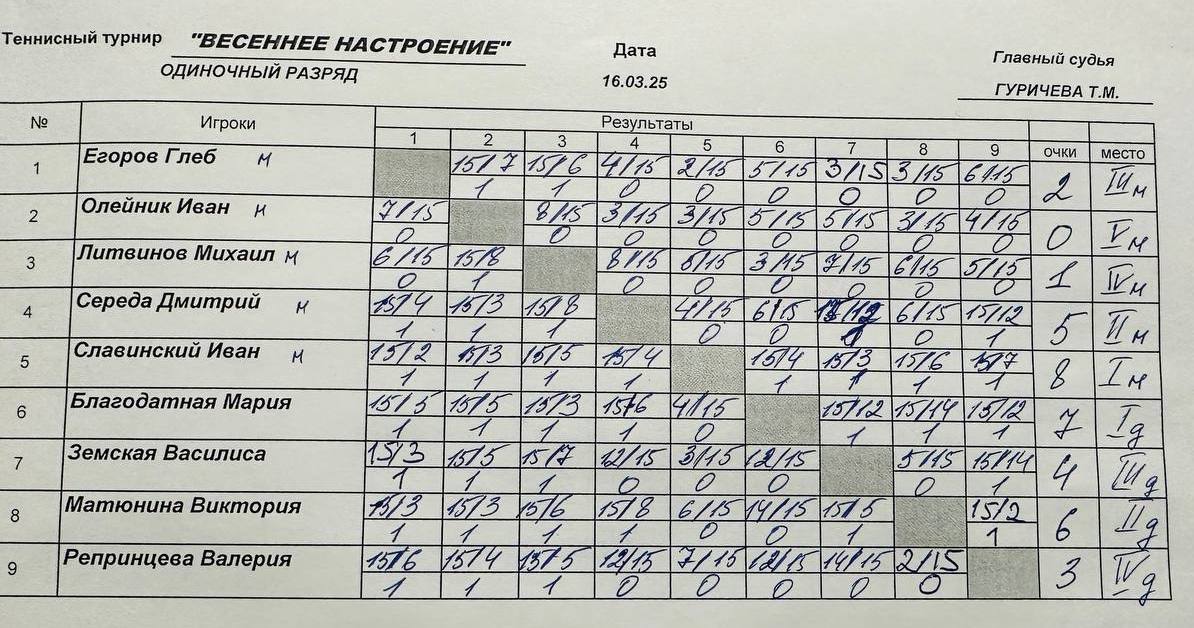 Теннисный турнир "ВЕСЕННЕЕ НАСТРОЕНИЕ" Дата Главный судья
ОДИНОЧНЫЙ РАЗРЯД 16.03.25 ГУРИЧЕВА Т.М.
№ Игроки Результаты очки место
1 2 3 4 5 6 7 8 9
1 Егоров Глеб м 15/7 15/6 4/15 2/15 5/15 3/15 3/15 6/15 2 III м
1 1 0 0 0 0 0 0
2 Олейник Иван м 7/15 8/15 3/15 3/15 5/15 5/15 3/15 4/15 0 V м
0 0 0 0 0 0 0 0
3 Литвинов Михаил м 6/15 15/8 8/15 5/15 3/15 7/15 6/15 5/15 1 IV м
0 1 0 0 0 0 0 0
4 Середа Дмитрий м 15/4 15/3 15/8 4/15 6/15 15/12 6/15 15/12 5 II м
1 1 1 0 0 1 0 1
5 Славинский Иван м 15/2 15/3 15/5 15/4 15/4 15/3 15/6 15/7 8 I м
1 1 1 1 1 1 1 1
6 Благодатная Мария 15/5 15/5 15/3 15/6 4/15 15/12 15/14 15/12 7 I д
1 1 1 1 0 1 1 1
7 Земская Василиса 15/3 15/5 15/7 12/15 3/15 12/15 5/15 15/14 4 III д
1 1 1 0 0 0 0 1
8 Матюнина Виктория 15/3 15/3 15/6 15/8 6/15 14/15 15/5 15/2 6 II д
1 1 1 1 0 0 1 1
9 Репринцева Валерия 15/6 15/4 15/5 12/15 7/15 12/15 14/15 2/15 3 IV д
1 1 1 0 0 0 0 0